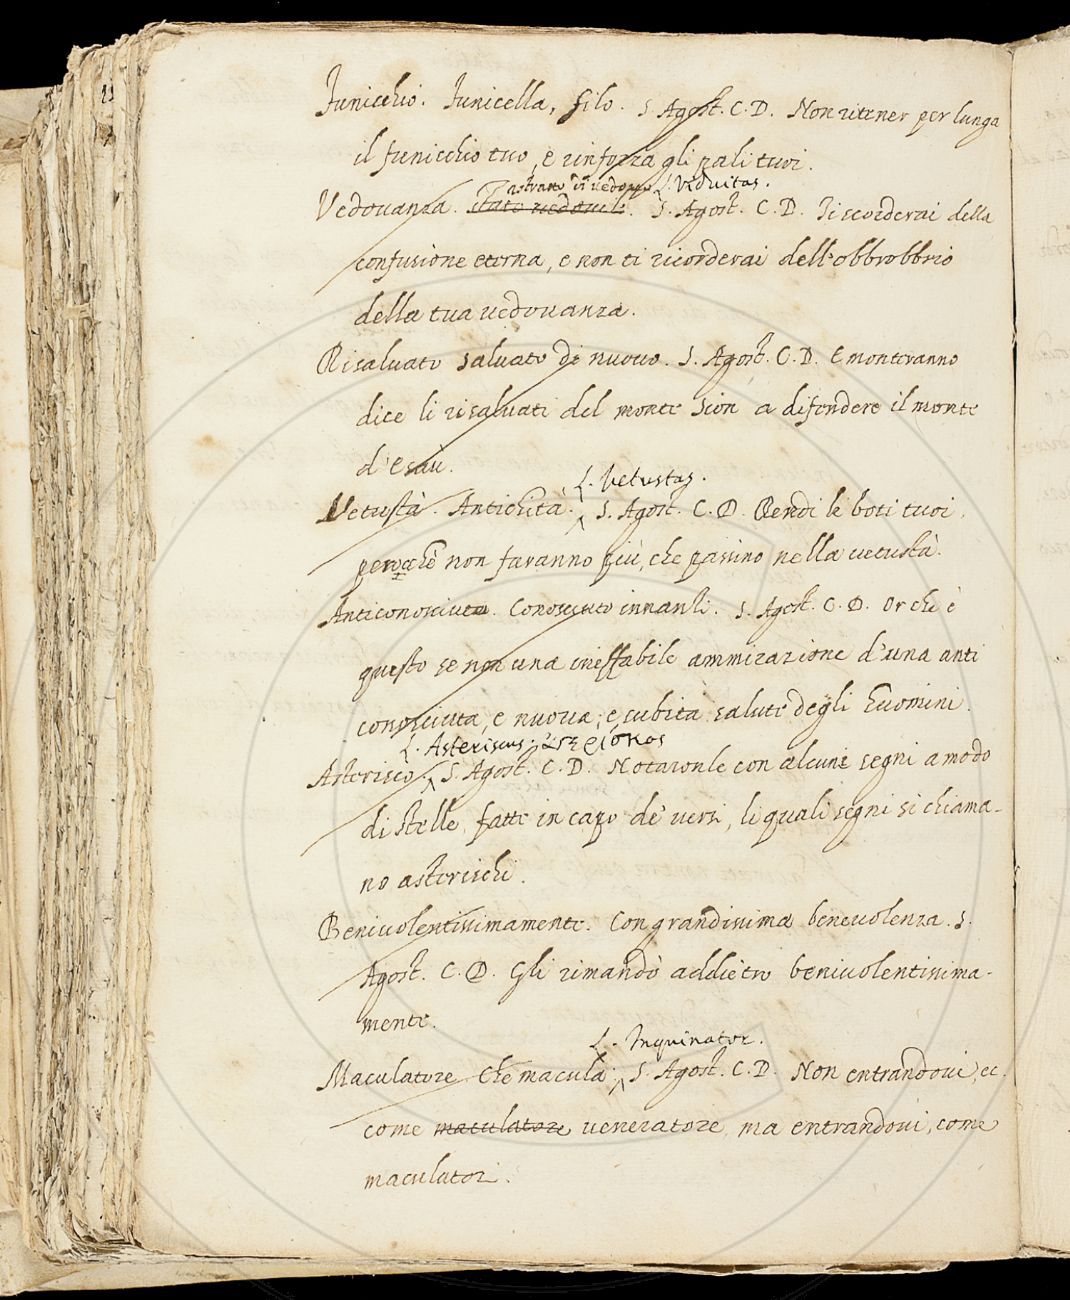 Funicchio. Funicella, filo. S. Agost. C. D. Non ritener per lunga
il funicchio tuo, e rinforza gli pali tuoi.
astratto di vedovo L. Viduitas.
Vedovanza. Stato vedovile. S. Agost. C. D. Ti scorderai della
confusione eterna, e non ti ricorderai dell'obbrobbrio
della tua vedovanza.
Risalvato salvato di nuovo. S. Agost. C. D. E monteranno
dice li risalvati del monte Sion a difendere il monte
d'Esaù.
L. Vetustas.
Vetustà. Antichità. S. Agost. C. D. Rendi le boti tuoi,
perocchè non faranno più, che passino nella vetustà.
Anticonosciuta. Conosciuto innanti. S. Agost. C. D. Or che è
questo se non una ineffabile ammirazione d'una anti
conosciuta, e nuova, e subita salute degli huomini.
L. Asteriscus; ἀστερίσκος
Asterisco. S. Agost. C. D. Notaronle con alcuni segni a modo
di stelle, fatte in capo de' versi, li quali segni si chiama-
no asterischi.
Benivolentissimamente. Con grandissima benevolenza. S.
Agost. C. D. Gli rimandò addietro benivolentissima-
mente.
L. Inquinator.
Maculatore Che macula. S. Agost. C. D. Non entrandovi, ec.
come maculatore veneratore, ma entrandovi, come
maculatori.